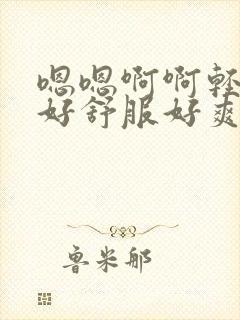 嗯嗯啊啊轻
好舒服好爽
鲁米那